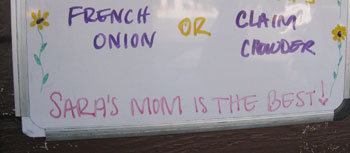 FRENCH
ONION
OR
CLAIM
CHOWDER
SARA'S MOM IS THE BEST!